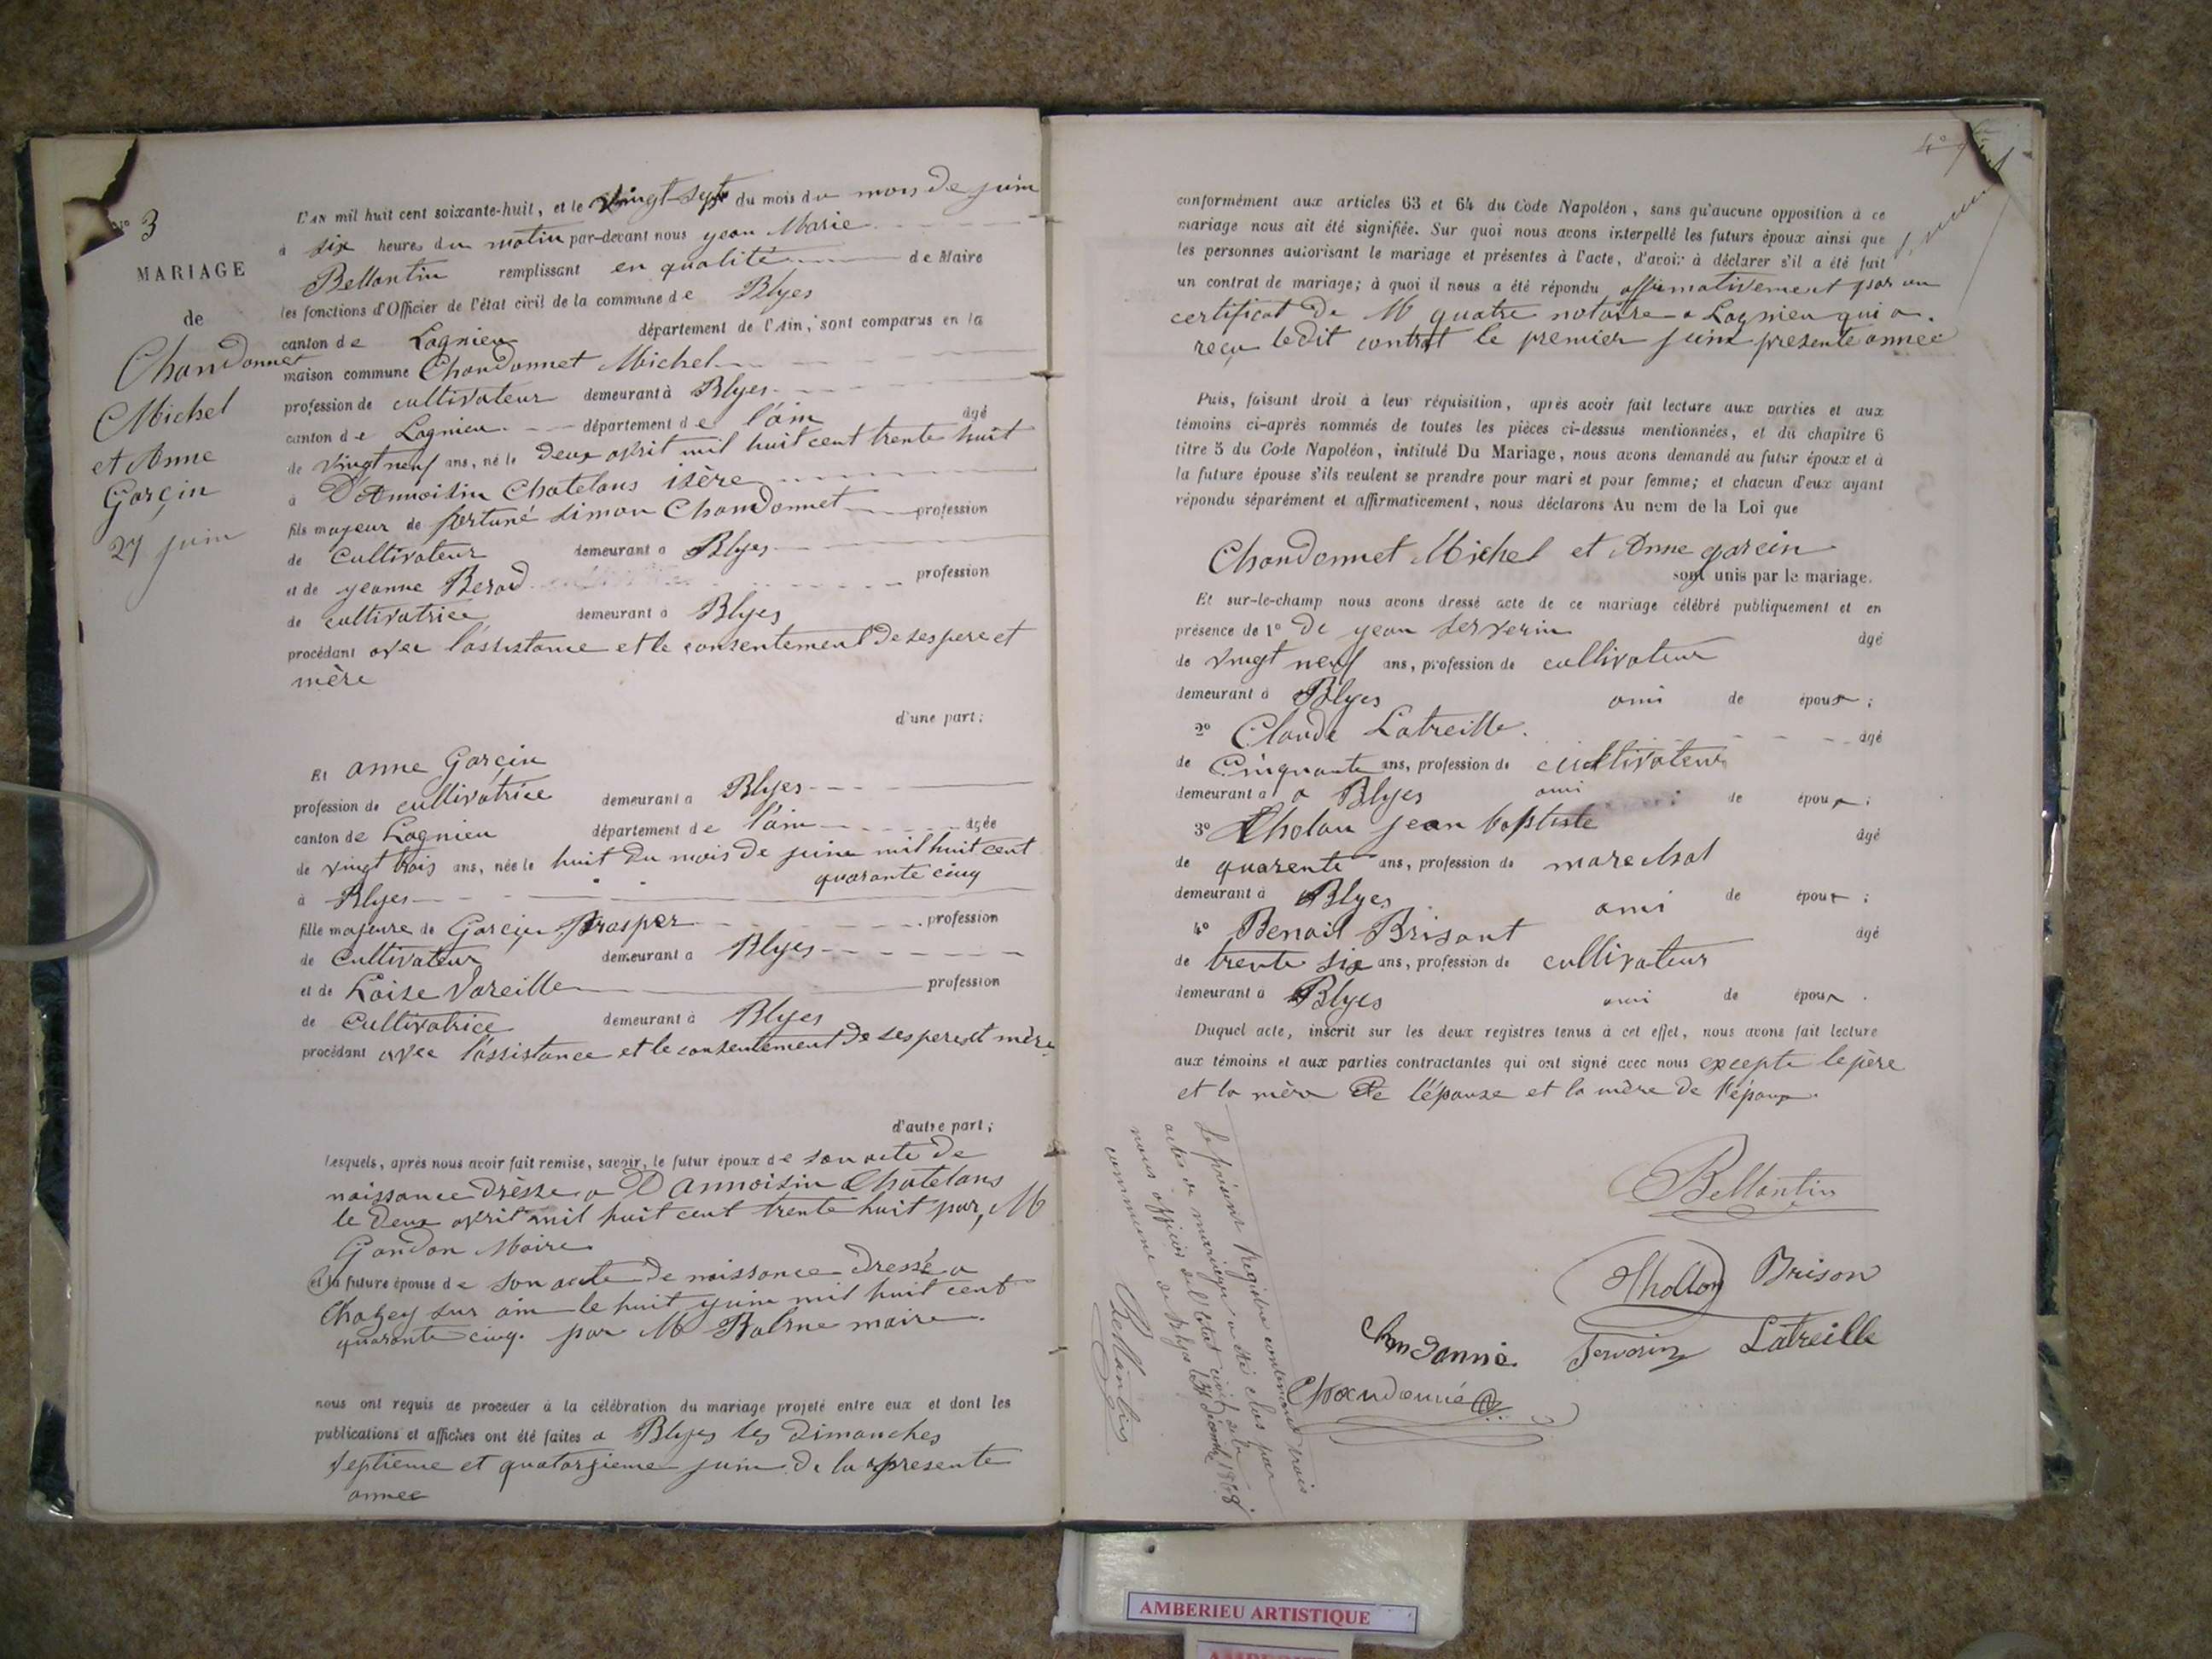 No 3
MARIAGE
de
Chandonnet
Michel
et Anne
Garçin
27 juin
L'AN mil huit cent soixante-huit, et le vingt-sept du mois du mois de juin
à six heures du matin par-devant nous yean Marie
Bellantin remplissant en qualité de Maire
les fonctions d'Officier de l'état civil de la commune de Blyes
canton de Lagnieu département de l'Ain, sont comparus en la
maison commune Chandonnet Michel
profession de cultivateur demeurant à Blyes
canton de Lagnieu département de l'ain âgé
de vingt neuf ans, né le deux avril mil huit cent trente huit
à D'Annoisin Chatelans isère
fils majeur de fortuné simon Chandonnet profession
de cultivateur demeurant a Blyes
et de yeanne Berod profession
de cultivatrice demeurant a Blyes
procédant avec l'assistance et le consentement de ses pere et
mère
d'une part;
Et anne Garçin
profession de cultivatrice demeurant a Blyes
canton de Lagnieu département de l'ain âgée
de vingt trois ans, née le huit du mois de juin mil huit cent
quarante cinq
à Blyes
fille majeure de Garçin Prosper profession
de cultivateur demeurant a Blyes
et de Loise Vareille profession
de cultivatrice demeurant à Blyes
procédant avec l'assistance et le consentement de ses pere et mère
d'autre part;
Lesquels, après nous avoir fait remise, savoir, le futur époux de son acte de
naissance drèsse a D'annoisin Chatelans
le deux avril mil huit cent trente huit par, M
Gandon Maire
et la future épouse de son acte de naissance dressé a
Chazey sur ain le huit yuin mil huit cent
quarante cinq. par M Balme maire.
nous ont requis de procéder à la célébration du mariage projeté entre eux et dont les
publications et affiches ont été faites a Blyes les dimanches
septieme et quatorzieme juin de la presente
annee
conformément aux articles 63 et 64 du Code Napoléon, sans qu'aucune opposition à ce
mariage nous ait été signifiée. Sur quoi nous avons interpellé les futurs époux ainsi que
les personnes autorisant le mariage et présentes à l'acte, d'avoir à déclarer s'il a été fait
un contrat de mariage; à quoi il nous a été répondu affirmativement par un
certificat de M quatre notaire a Lagnieu qui a
reçu ledit contrat le premier juin presente annee
Puis, faisant droit à leur réquisition, après avoir fait lecture aux parties et aux
témoins ci-après nommés de toutes les pièces ci-dessus mentionnées, et du chapitre 6
titre 5 du Code Napoléon, intitulé Du Mariage, nous avons demandé au futur époux et à
la future épouse s'ils veulent se prendre pour mari et pour femme; et chacun d'eux ayant
répondu séparément et affirmativement, nous déclarons Au nom de la Loi que
Chandonnet Michel et Anne garcin
sont unis par le mariage.
Et sur-le-champ nous avons dressé acte de ce mariage célébré publiquement et en
présence de 1° De yean Serverin âgé
de vingt neuf ans, profession de cultivateur
demeurant à Blyes ami de époux;
2° Claude Latreille. âgé
de Cinquante ans, profession de cultivateur
demeurant a a Blyes ami de époux;
3° Tholan jean baptiste âgé
de quarente ans, profession de marechal
demeurant à Blyes ami de époux;
4° Benoit Brisont âgé
de trente six ans, profession de cultivateur
demeurant à Blyes ami de époux.
Duquel acte, inscrit sur les deux registres tenus à cet effet, nous avons fait lecture
aux témoins et aux parties contractantes qui ont signé avec nous excepte le père
et la mère de l'épouse et la mère de l'époux.
Bellantin
Thollon Brison
Chandonné Serverin Latreille
Chandonné
Le présent Registre contenant trois
actes de mariages a été clos par
nous officier de l'état civil de la
commune de Blyes le 31 décembre 1868
Bellantin
AMBERIEU ARTISTIQUE